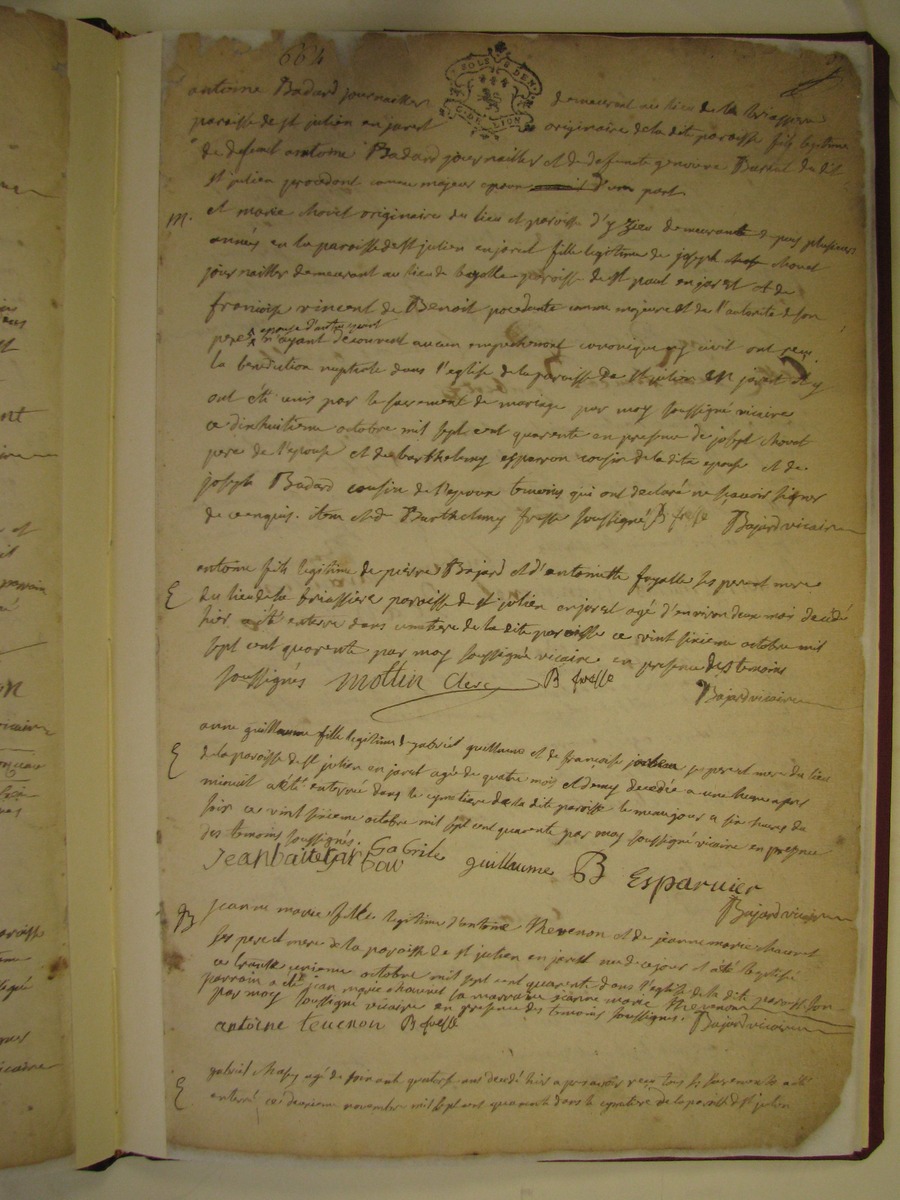 664
2 SOLS 8 DEN.
G. DE LION
antoine Badard journaillier demeurant au lieu de la briassiere
paroisse de st julien en jarest originaire de la dite paroisse fils legitime
de defunt antoine Badard journaillier et de defunte du dit
st julien procedant comme majeur epoux d'une part
M. et marie chovet originaire du lieu et paroisse d'yzieu demeurante depuis plusieurs
années en la paroisse de st julien en jarest fille legitime de joseph chovet
journaillier demeurant au lieu de paroisse de st paul en jarest et de
francoise vincent de Benoit procedante comme majeure et de l'autorité de son
pere epouse d'autre part
n'ayant decouvert aucun empechement canonique ny civil ont reçu
la benediction nuptiale dans l'eglise de la paroisse de st julien en jarest et y
ont été unis par le sacrement de mariage par moy soussigné vicaire
ce dixhuitieme octobre mil sept cent quarente en presence de joseph chovet
pere de l'epouse et de barthelemy esparron cousin de la dite epouse et de
joseph Badard cousin de l'epoux temoins qui ont declaré ne sçavoir signer
de ce enquis. item et de Barthelemy fresse soussigné B fresse Bajard vicaire
antoine fils legitime de pierre Bajard et d'antoinette fayolle ses pere et mere
E du lieu de la briassiere paroisse de st julien en jarest agé d'environ deux mois decedé
hier a été enterré dans cimetiere de la dite paroisse ce vint sixieme octobre mil
sept cent quarente par moy soussigné vicaire en presence des temoins
soussignés mottin clerc B fresse
Bajard vicaire
anne guillaume fille legitime de gabriel guillaume et de francoise ses pere et mere du lieu
E de la paroisse de st julien en jarest agée de quatre mois et demy decedée a une heure apres
minuit a été enterrée dans le cymetiere de la dite paroisse le meme jour a six heures du
soir ce vint sixieme octobre mil sept cent quarente par moy soussigné vicaire en presence
des temoins soussignés.
Jean baite GaGrile guillaume B Esparvier
Bajard vicaire
B jeanne marie fille legitime d'antoine thevenon et de jeanne marie chavret
ses pere et mere de la paroisse de st julien en jarest née ce jour et a été baptisé
ce trante unieme octobre mil sept cent quarente dans l'eglise de la dite paroisse son
parrain a été jean marie chavret la marraine marie thevenon
par moy soussigné vicaire en presence des temoins soussignés. Bajard vicaire
antoine teuenon B fresse
gabriel chapuy agé de soixant quatorze ans decedé hier apres avoir reçu tous les sacrements a été
E enterré ce deuxieme novembre mil sept cent quarante dans le cymetiere de la paroisse de st julien